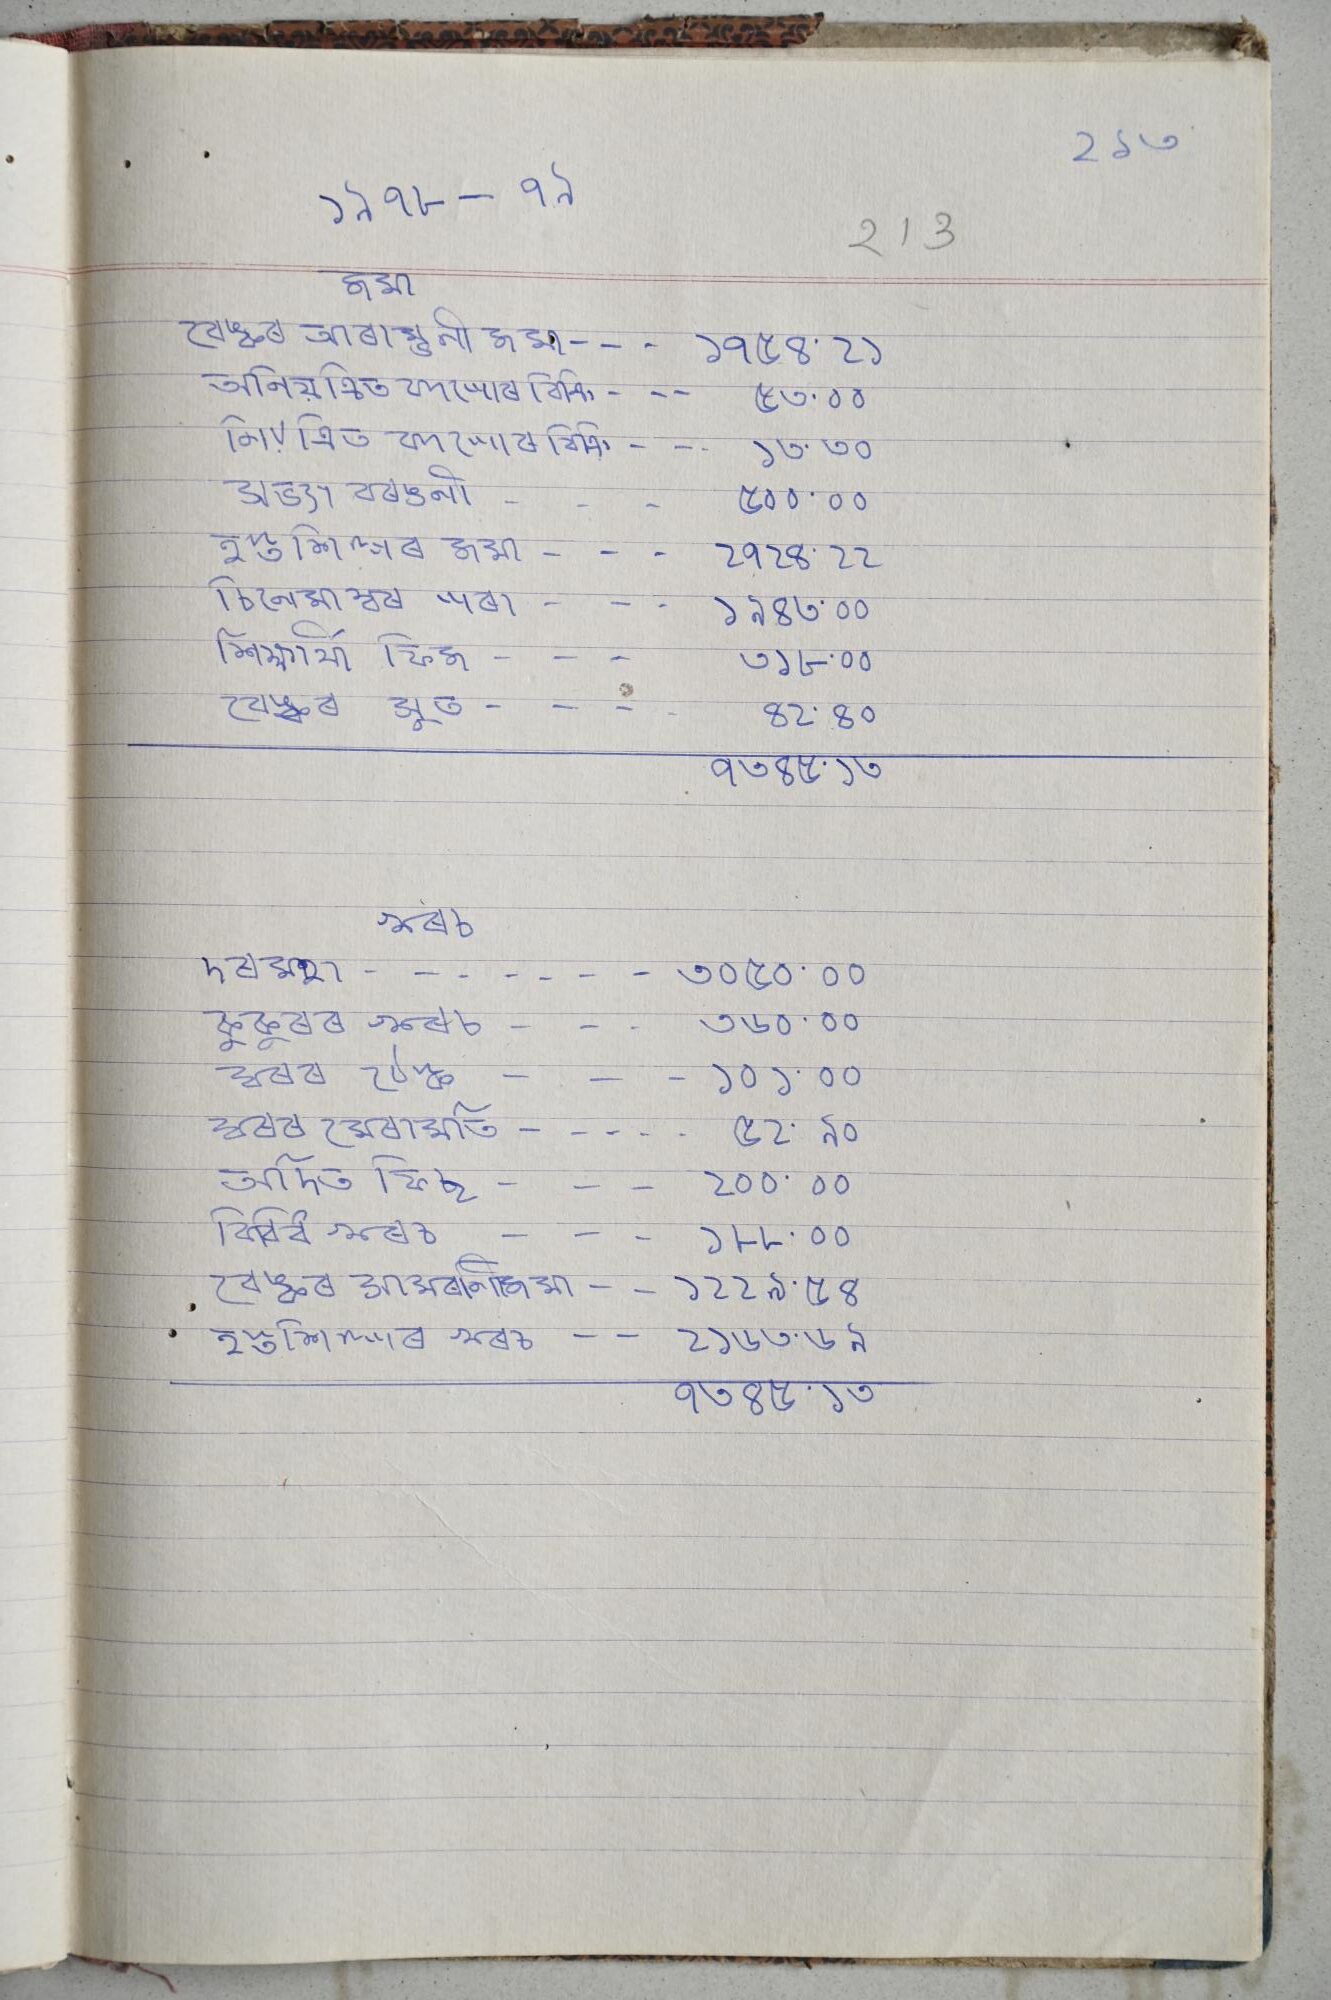 ২১৩
১৯৭৮ — ৭৯
213
জমা
বেঙ্কৰ আৰাম্ভনী জমা --- - ১৭৫৪.২১
অনিয়ন্ত্ৰিত কাপোৰ বিক্ৰি - -- ৫৩.০০
নিয়ন্ত্ৰিত কাপোৰ বিক্ৰি - -- ১৩.৩০
সভ্যা বৰঙনী - - - ৫০০.০০
হস্তশিল্পৰ জমা - - - ২৭২৪.২২
চিনেমা ঘৰৰ পৰা - - - ১৯৪৩.০০
শিক্ষাৰ্থী ফিজ - - - ৩১৮.০০
বেঙ্কৰ সুত - - - - ৪২.৪০
৭৩৪৫.১৩
খৰচ
দৰমহা - - - - - - - ৩০৫০.০০
কুকুৰৰ খৰচ - - - ৩৬০.০০
ঘৰৰ টেক্স - - - ১০১.০০
ঘৰৰ মেৰামতি - - - - - ৫২.৯০
অদিত ফিছ - - - ২০০.০০
বিবিধ খৰচ - - - ১৮৮.০০
বেঙ্কৰ সামৰনি জমা - - ১২২৯.৫৪
হস্তশিল্পৰ খৰচ - - ২১৬৩.৬৯
৭৩৪৫.১৩